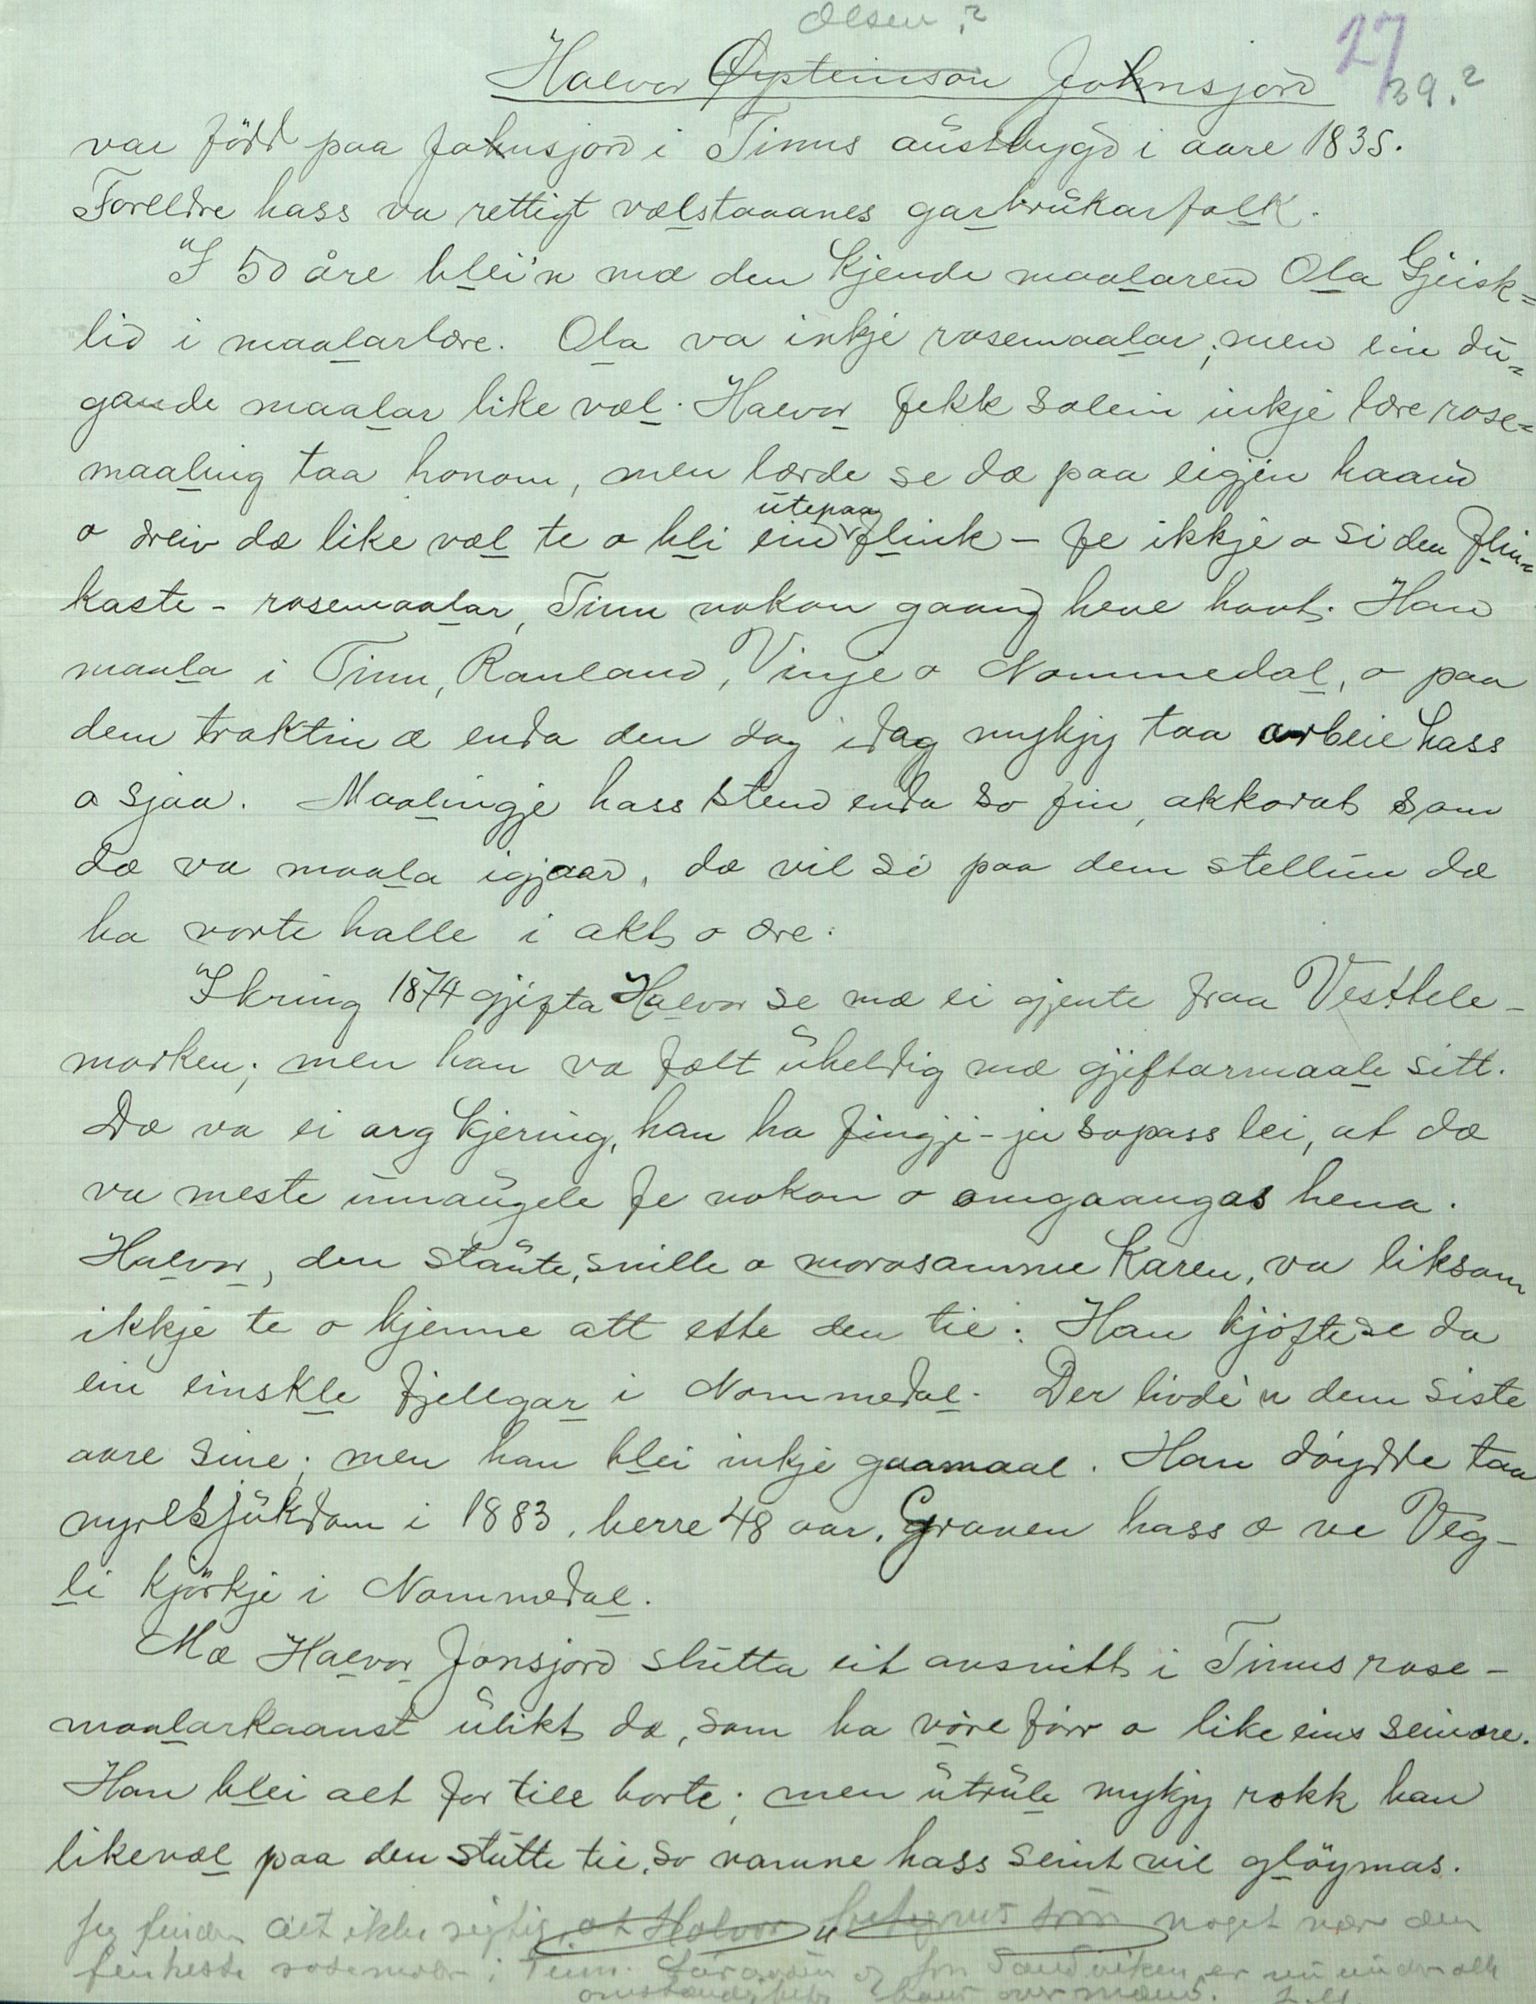 Olsen?
27
Halvor Øysteinson Johnsjord 39.?
var född paa Johnsjord i Tinns austbygd i aare 1835.
Foreldre hass va rettigt vælstaaanes garbrukarfolk.
I 50 åre blei'n mæ den kjende maalaren Ola Gjeisk=
lid i maalarlære. Ola va inkje rosemaalar, men ein du=
gande maalar like væl. Halvor fekk solein inkje lære rose=
maaling taa honom, men lærde se dæ paa eigjen haand
o dreiv dæ like væl te o bli ein utepaa flink - fe ikkje o si den flin=
kaste - rosemaalar, Tinn nokon gaang heve havt. Han
maala i Tinn, Rauland, Vinje o Nommedal, o paa
dem traktin æ enda den dag idag mykjy taa arbeie hass
o sjaa. Maalingje hass stend enda so fin, akkorat som
dæ va maala igjaar, dæ vil si paa dem stellun dæ
ha vorte halle i akt o ære.
Ikring 1874 gjifta Halvor se mæ ei gjente fraa Vesttele-
marken; men han va fælt uheldig mæ gjiftarmaale sitt.
Dæ va ei arg kjering, han ha fingji - ja sopass lei, at dæ
va meste umaugele fe nokon o omgaangas hena.
Halvor, den staute, snille o morosamme karen, va liksom
ikkje te o kjenne att ette den tie. Han kjöfte se da
ein einskle fjellgar i Nommedal. Der livde'n dem siste
aare sine; men han blei inkje gaamaal. Han döydde taa
nyresjukdom i 1883, berre 48 aar. Graven hass æ ve Veg-
li kjörkje i Nommedal.
Mæ Halvor Jonsjord slutta eit avsnitt i Tinns rose-
maalarkaanst ulikt dæ, som ha vöre förr o like eins seinare.
Han blei alt for tile borte; men utrule mykjy rokk han
likevæl paa den stutte tie, so namne hass seint vil glöymas.
Jeg finder det ikke rigtig at Halvor " betegnes som noget nær den
flinkeste rosemaler i Tinn. og Jon Sandviken er nu under alle
omstændigheter hans overmænd.